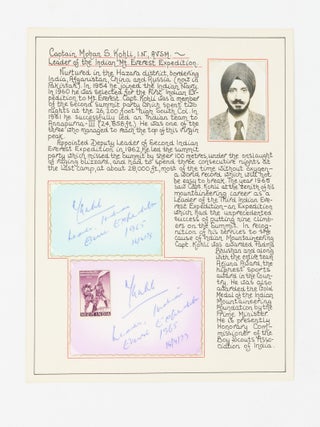 Captain Mohan S. Kohli, I.N., AVSM ~
Leader of the Indian Mt Everest Expedition
Nurtured in the Hazara district, bordering
India, Afganistan, China and Russia (now in
Pakistan). In 1954 he joined the Indian Navy.
In 1960 he was selected for the First Indian Ex-
pedition to Mt Everest. Capt. Kohli was a member
of the Second Summit party which spent two
nights at the 26,200 foot high South Col. In
1961 he successfully led an Indian team to
Annapurna-III (24,858 ft.) He was one of the
three who managed to reach the top of this virgin
peak.
Appointed Deputy Leader of Second Indian
Everest Expedition in 1962, he led the summit
party which missed the Summit by sheer 100 metres, under the onslaught
of raging blizzards, and had to spend three consecutive nights at
the last camp, at about 28,000 ft., most of the time without oxygen-
a world record which will not
be easy to break. The year 1965
saw Capt. Kohli at the zenith of his
mountaineering career as a
Leader of the Third Indian Ever-
est Expedition-an Expedition
which had the unprecedented
success of putting nine climb-
ers on the Summit. In recog-
nition of his services to the
cause of Indian Mountaineering
Capt. Kohli was awarded Padma
Bhushan and along
with the entire team
Arjuna Award, the
highest sports
award in the Coun-
try. He was also
awarded the Gold
Medal of the Indian
Mountaineering
Foundation by the
Prime Minister.
He is presently
Honorary Com-
missioner of the
Boy Scouts Asso-
ciation of India.
Kohli
Leader, Indian
Everest Expedition
1965
INDIA
Kohli
Leader, Indian
Everest Expedition
1965